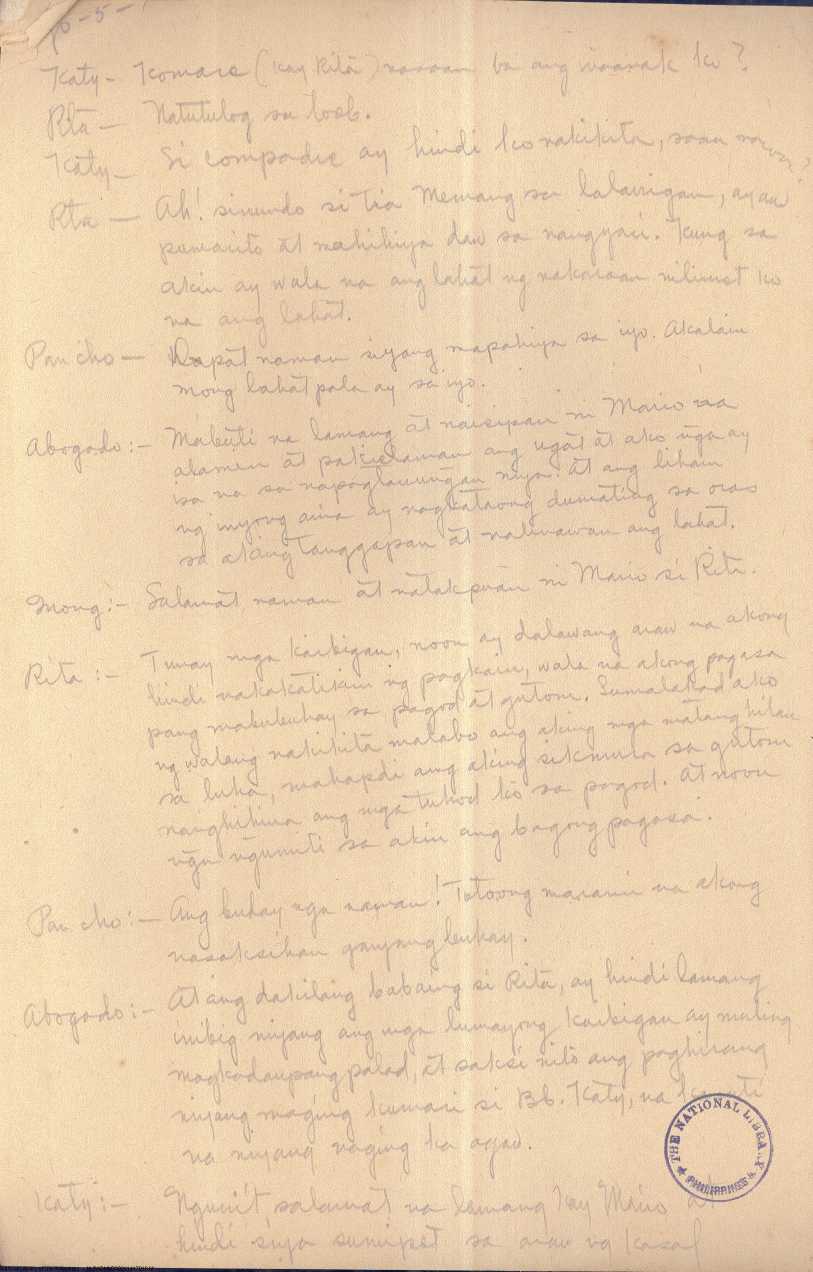 - 5 -
Katy - Komare (kay Rita) nasaan ba ang inaanak ko?
Rita - Natutulog sa loob.
Katy - Si compadre ay hindi ko nakikita, saan
Rita - Ah! sinundo si tia Memang sa lalawigan, ayaw
pumarito at nahihiya daw sa nangyari. Kung sa
akin ay wala na ang lahat ng nakaraan nilimot ko
na ang lahat.
Pancho - Dapat naman siyang mapahiya sa iyo. Akalain
mong lahat pala ay sa iyo.
Abogado:- Mabuti na lamang at naisipan ni Mario na
alamin at pakielaman ang ugat at ako nga ay
isa na sa napaglawingan niya. At ang liham
ng inyong ama ay nagkataong dumating sa oras
sa aking tanggapan at nalinawan ang lahat.
Mong:- Salamat naman at natakpuan ni Mario si Rita.
Rita:- Tunay mga kaibigan, noon ay dalawang araw na akong
hindi nakakatikim ng pagkain, wala na akong pagasa
pang mabubuhay sa pagod at gutom. Lumalakad ako
ng walang nakikita malabo ang aking mga matang hilam
sa luha, mahapdi ang aking sikmura sa gutom
nanghihina ang mga tuhod ko sa pagod. At noon
nga ngumiti sa akin ang bagong pagasa.
Pancho:- Ang buhay nga naman! Totoong marami na akong
nasaksihan ganyang buhay.
Abogado:- At ang dakilang babaing si Rita, ay hindi lamang
inibig niyang ang mga lumayong kaibigan ay muling
magkadaupang palad, at saksi nito ang paghirang
niyang maging kumari si Bb. Katy, na
na niyang naging ka agaw.
Katy:- Ngunit salamat na lamang kay Mario at
hindi siya sumipot sa araw ng kasal
THE NATIONAL LIBRARY
PHILIPPINES